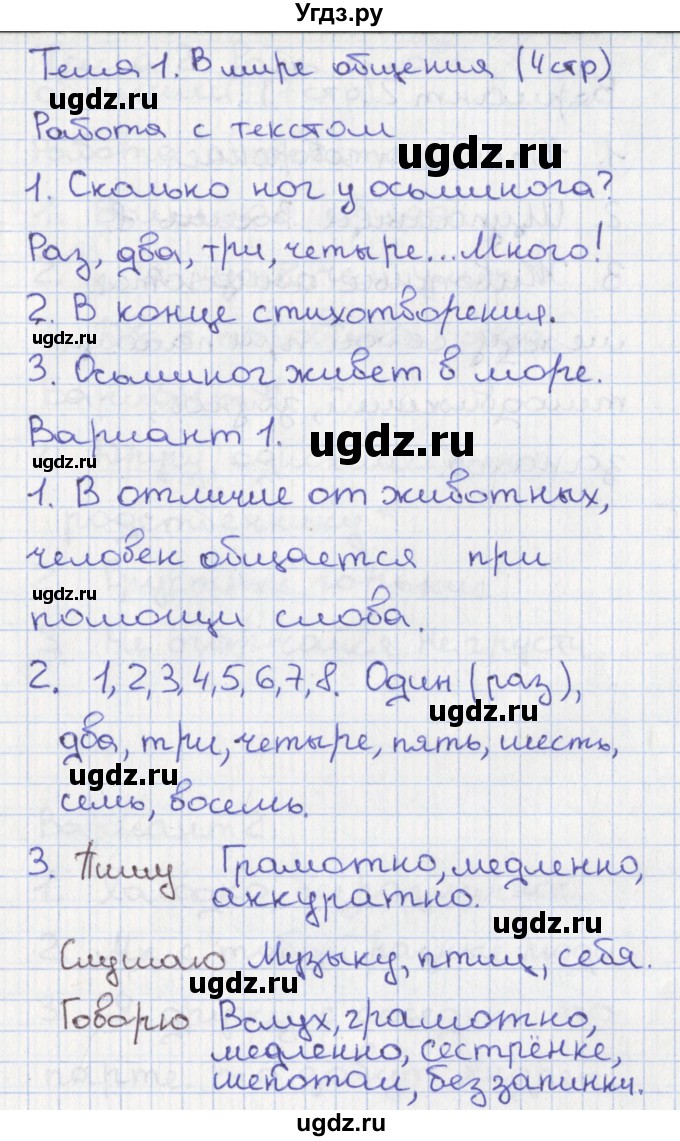 Угдз.ру
Тема 1. В мире общения (4 стр)
ugdz.ru
Работа с текстом
ugdz.ru
1. Сколько ног у осьминога?
Раз, два, три, четыре...Много!
2. В конце стихотворения.
ugdz.ru
3. Осьминог живет в море.
Вариант 1.
ugdz.ru
ugdz.ru
1. В отличие от животных,
человек общается при
ugdz.ru
помощи слова.
2. 1,2,3,4,5,6,7,8. Один (раз),
ugdz.ru
два, три, четыре, пять, шесть,
ugdz.ru
семь, восемь.
3. Пишу Грамотно, медленно,
аккуратно.
ugdz.ru
Слушаю Музыку, птиц, себя.
ugdz.ru
Говорю Вслух, грамотно,
медленно, сестрёнке,
шепотом, без запинки.
ugdz.ru